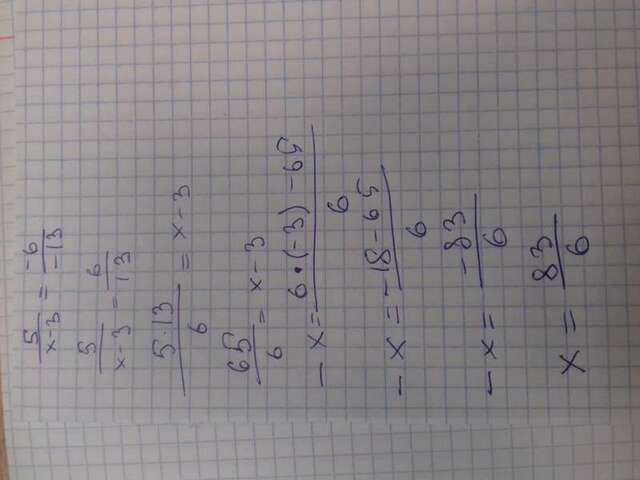 5/(x-3) = -6/-13
5/(x-3) = 6/13
5·13/6 = x-3
65/6 = x-3
-x = 6·(-3)-65/6
-x = -18-65/6
-x = -83/6
x = 83/6